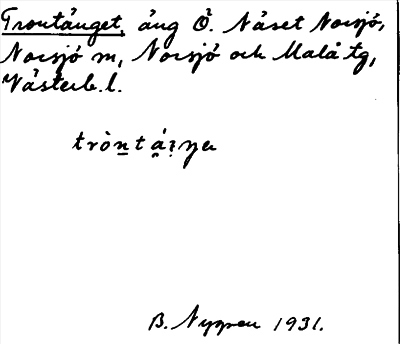 Trontänget, äng Ö. Näset Norsjö,
Norsjö sn, Norsjö och Malå tg,
Västerb. l.
B. Nygren 1931.